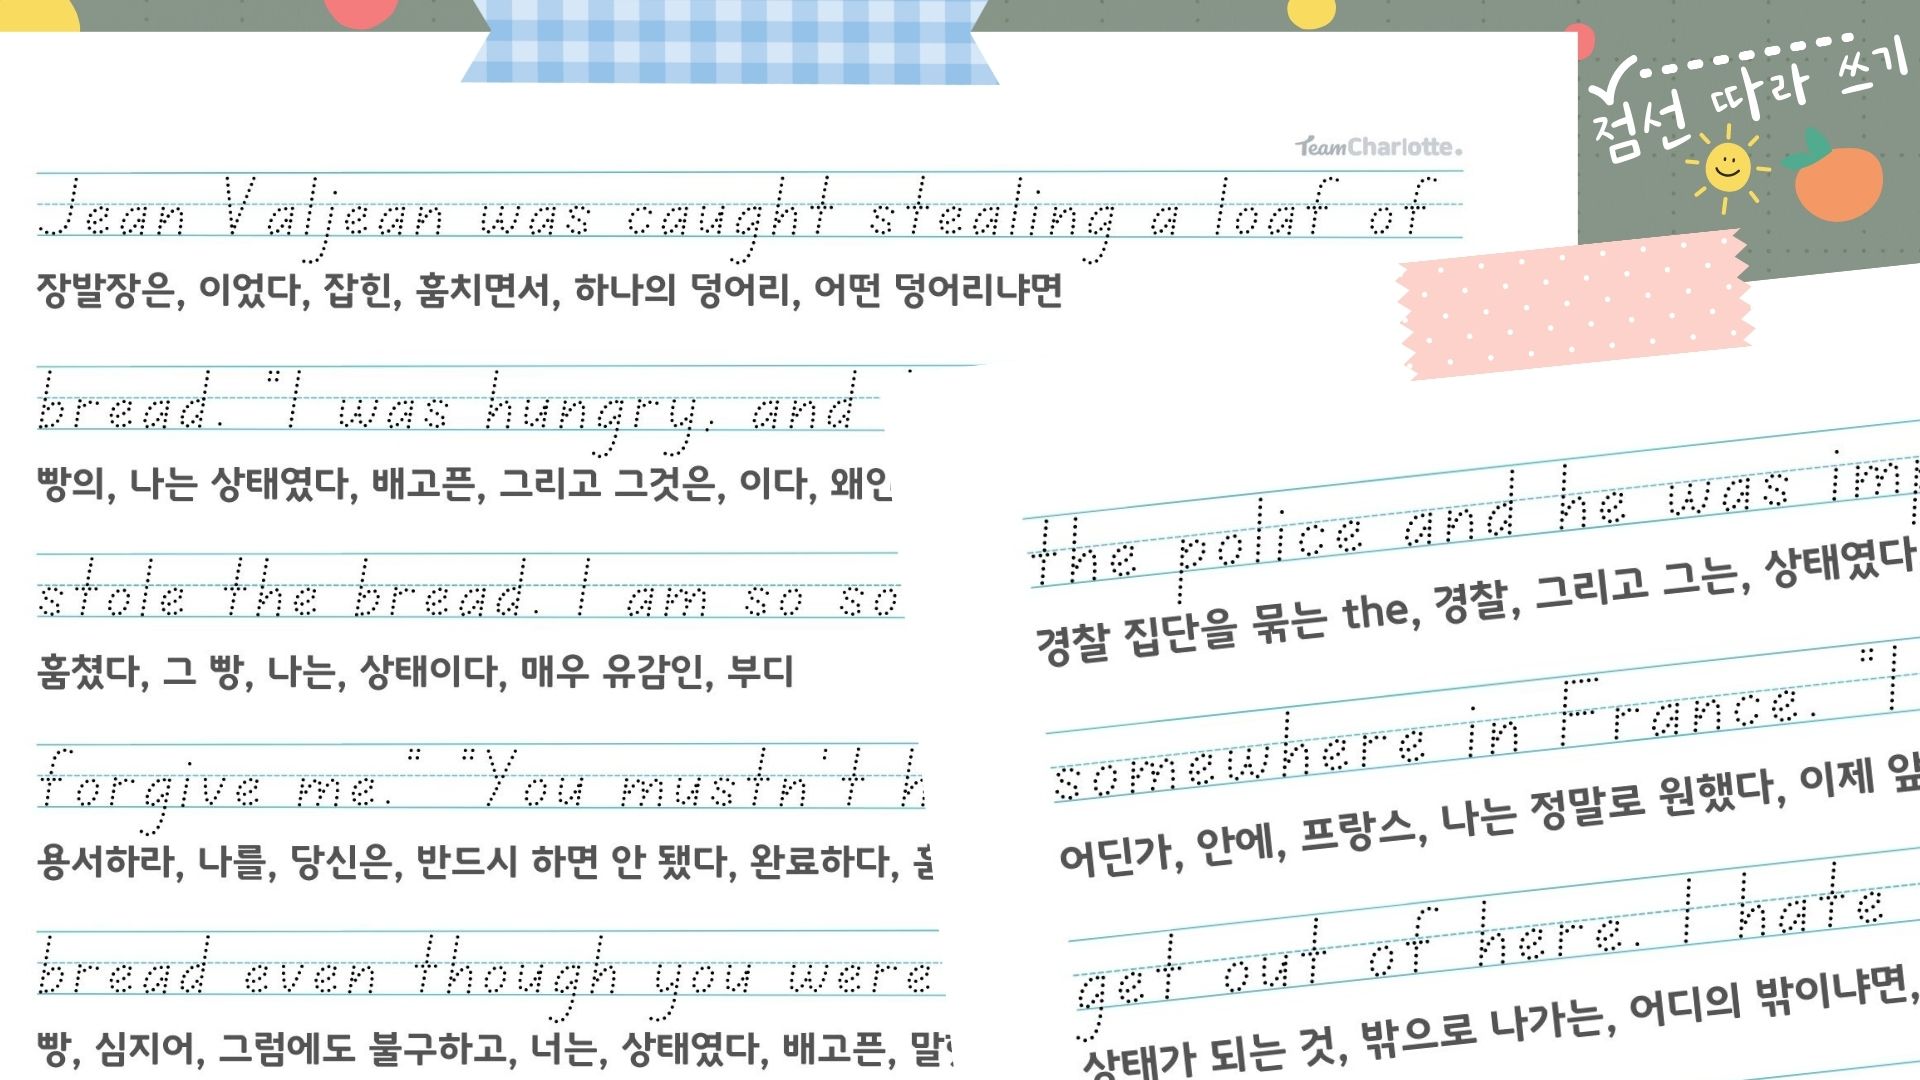 점선 따라 쓰기
TeamCharlotte.
Jean Valjean was caught stealing a loaf of
장발장은, 이었다, 잡힌, 훔치면서, 하나의 덩어리, 어떤 덩어리냐면
bread. "I was hungry, and
빵의, 나는 상태였다, 배고픈, 그리고 그것은, 이다,
stole the bread. I am so so
훔쳤다, 그 빵, 나는, 상태이다, 매우 유감인, 부디
forgive me." "You mustn't h
용서하라, 나를, 당신은, 반드시 하면 안 됐다, 완료하다,
bread even though you were
빵, 심지어, 그럼에도 불구하고, 너는, 상태였다, 배고픈,
the police and he was
경찰 집단을 묶는 the, 경찰, 그리고 그는, 상태였다
somewhere in France. "I
어딘가, 안에, 프랑스, 나는 정말로 원했다, 이제
get out of here. I hate
상태가 되는 것, 밖으로 나가는, 어디의 밖이냐면,